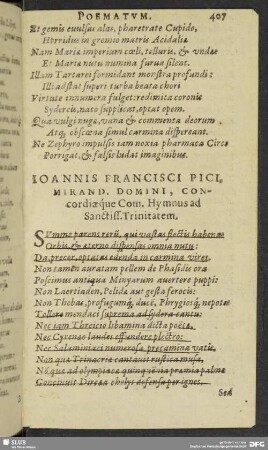 POEMATVM. 407
Et gemis euulsas alas, pharetrate Cupido,
Horridus in gremio matris Acidaliæ
Nam Maria imperium cœli, telluris, & vndæ
Et Mariæ nutu numina furua silent.
Illam Tartarei formidant monstra profundi:
Illi adstat superi turba beata chori
Virtute innumera fulget: redimita coronis
Sydereis, nato supplicat, optat opem.
Qua vulgi nugæ, vana & commenta deorum
Atq, obscœna simul carmina dispereant.
Ne Zephyro impulsis iam noxia pharmaca Circe
Porrigat, & falsis ludat imaginibus.
IOANNIS FRANCISCI PICI,
MIRAND. DOMINI, CON-
cordiæque Com. Hymnus ad
Sanctiss. Trinitatem.
SVmme parens rerū, qui vastas flectis habenas
Orbis, & æterno dispensas omnia nutu:
Da, precor, optatas edenda in carmina vires,
Non tamen auratam pellem de Phasidis ora
Poscimus antiqua Minyarum auertere puppi:
Non Laertiaden, Pelidæ aut gesta ferocis:
Non Thebas, profugumq, ducē, Phrygiosq, nepotes
Tollere mendaci suprema ad sydera cantu:
Nec iam Threicio libamina dicta poëtæ,
Nec Cyrneo laudes effundere plectro:
Nec Salaminiaci numerosa precamina vatis,
Non quæ Trinacriæ cantauit rustica musa,
Nō, quæ ad olympiacæ quinq; iō via præmia palmæ
Concinuit Dircæa chelys defensa per ignes.
Sed
SLUB
DFG